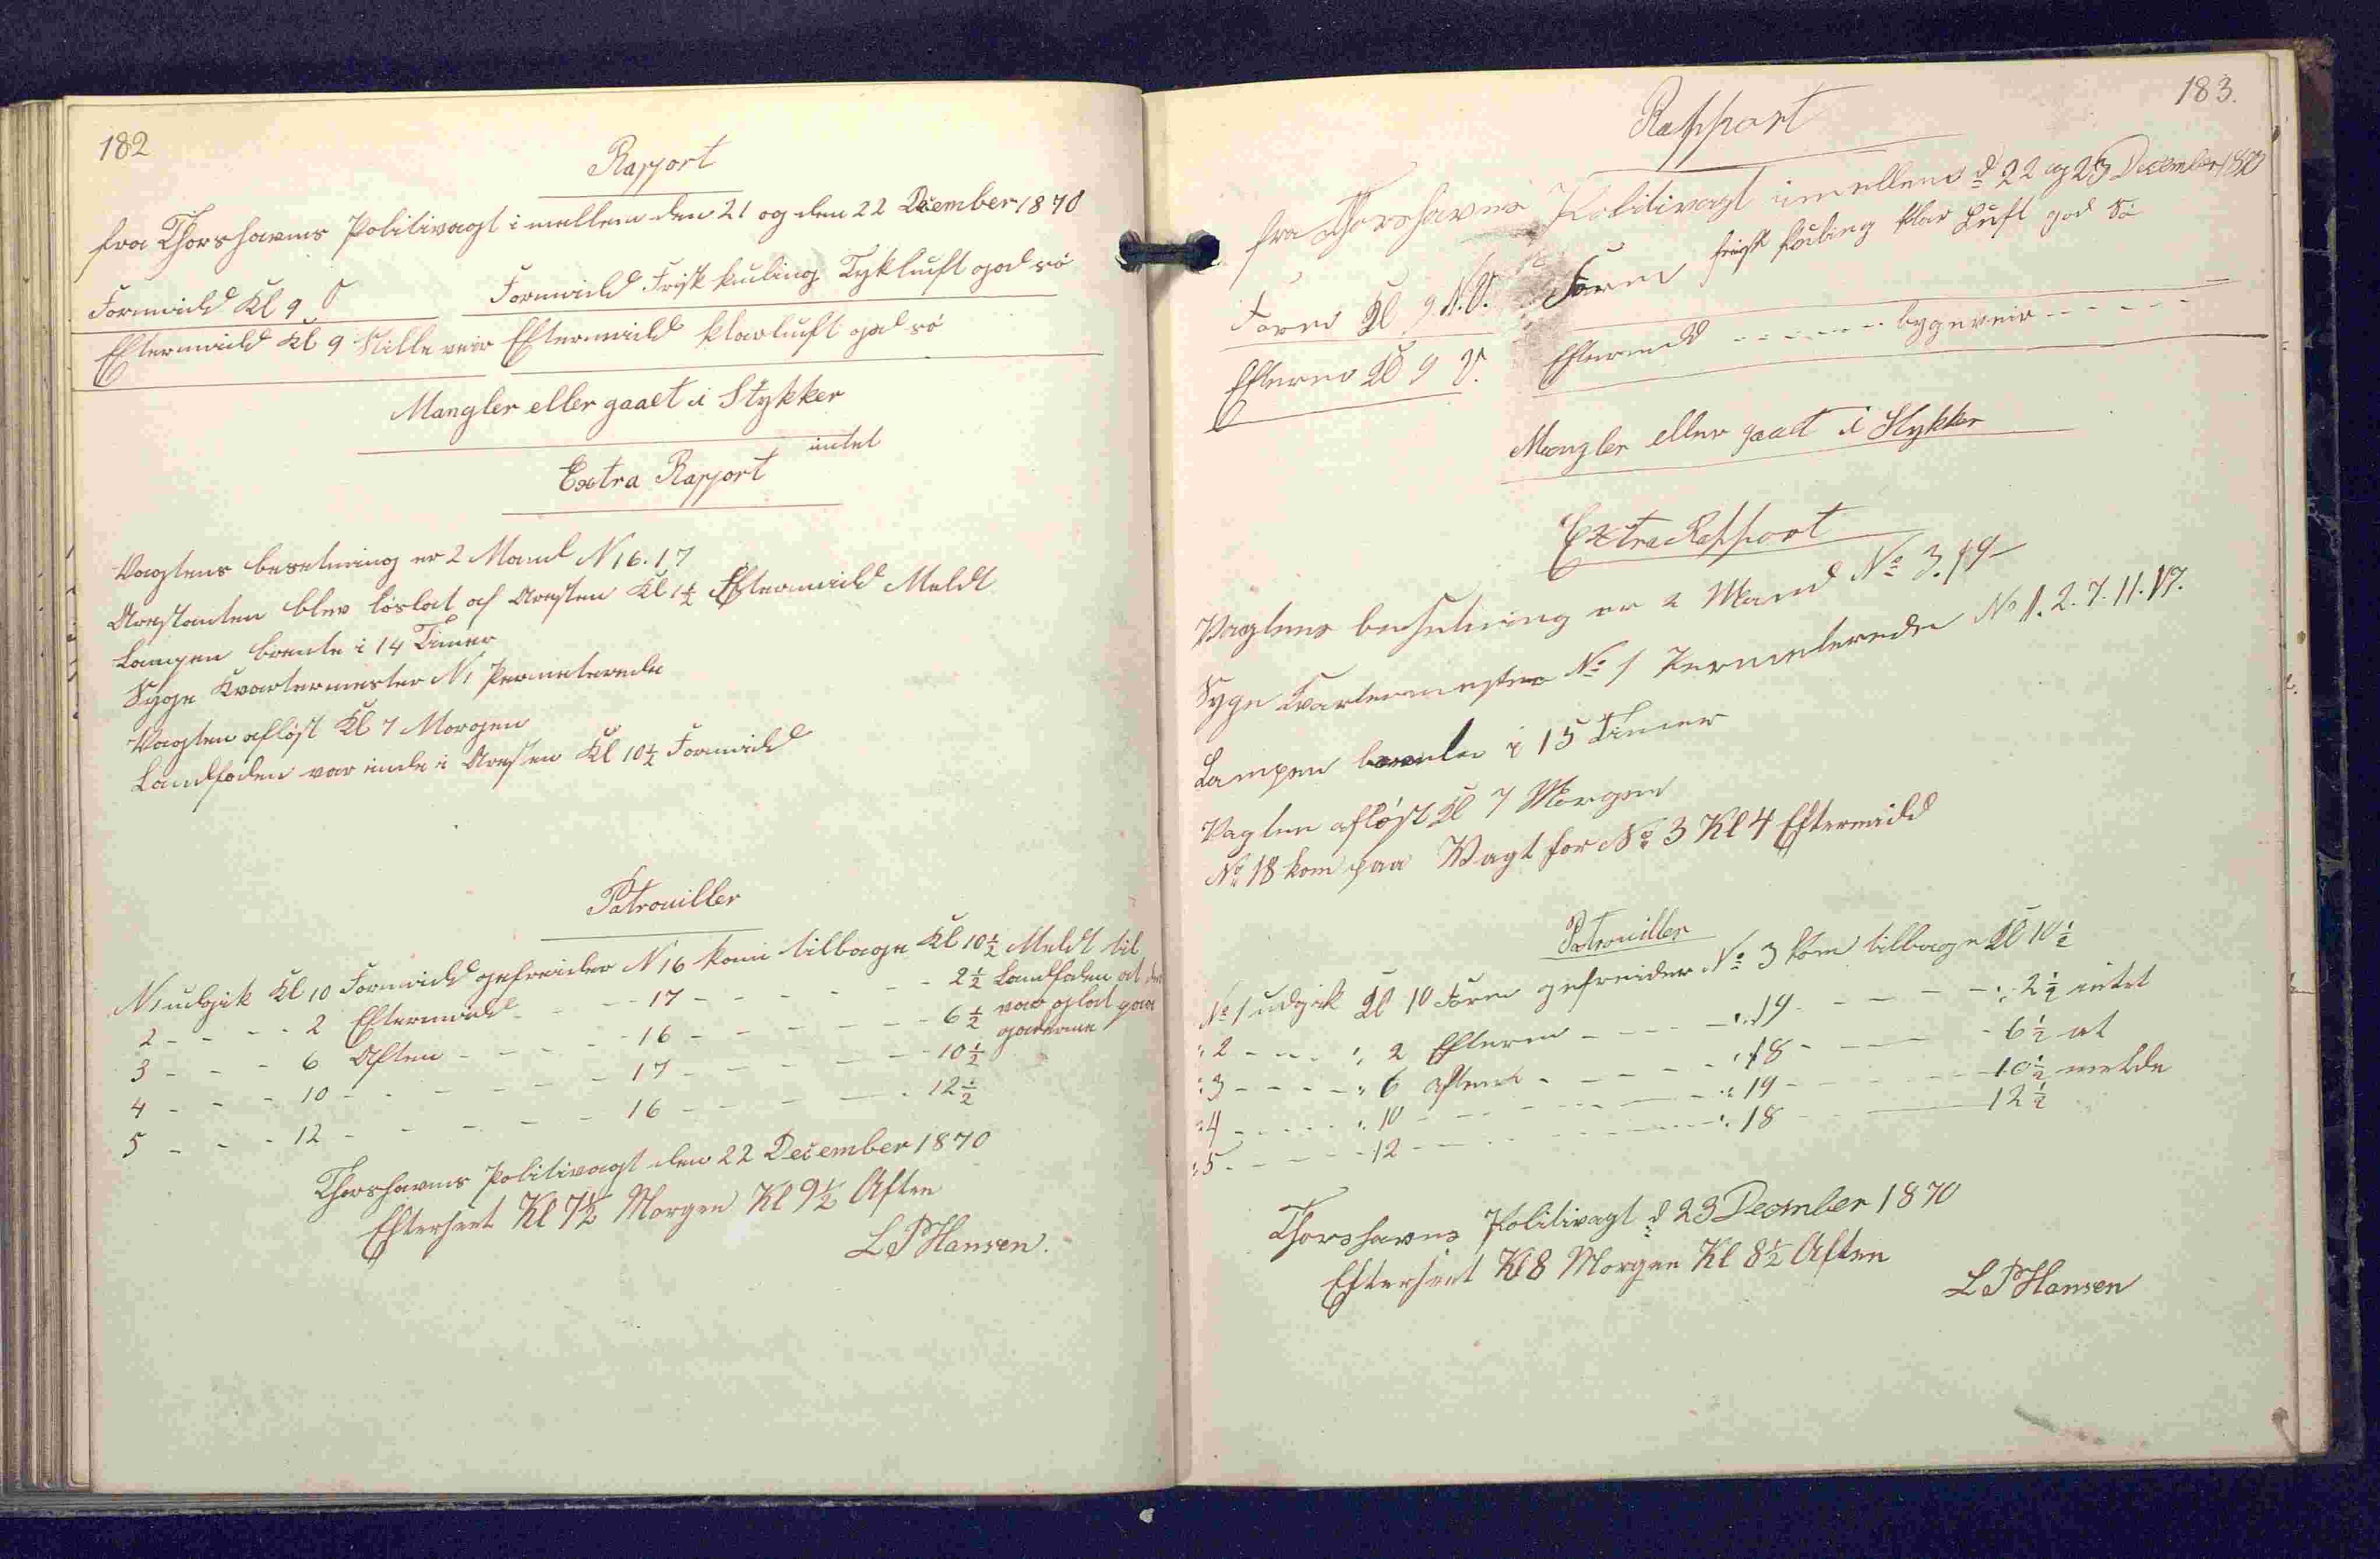 182
Rapport
fra Thorshavns Politivagt imellem den 21 og den 22 December 1870
Formidd Kl 9 O Formidd Frisk kuling Tykluft god sö
Eftermidd Kl 9 Stille veir Eftermidd klarluft god sö
Mangler eller gaaet i Stykker
intet
Extra Rapport
Vagtens besetning er 2 Mand N 16. 17
Arestanten blev löslat af Aresten Kl 1½ Eftermidd Meldt
Lampen brente i 14 Timer
Syge Kvartermester N1 Permeterede
Vagten aflöst Kl 7 Morgen
Landfoden var inde i Aresten Kl 10½ Formidd
Patrouiller
N1 udgik Kl 10 Formidd gefreider N 16 kom tilbage Kl 10½ Meldt til
2 - - - 2 Eftermidd - - 17 - - - - - 2½ Landfoden at
3 - - - 6 Aften - - - - 16 - - - - - 6½ var glat paa
4 - - - 10 - - - - - 17 - - - - - 10½ gaderne
5 - - - 12 - - - - - 16 - - - - 12½
Thorshavns Politivagt den 22 December 1870
Efterseet Kl 7½ Morgen Kl 9½ Aften
L P Hansen.
183.
Rapport
fra Thorshavns Politivagt imellem d 22 og 23 December 1870
Form Kl 9 N.O. Form frisk kuling klar Luft god Sö
Efterm Kl 9 O. Eftermd - - - - - - bygeveir - - - - -
Mangler eller gaaet i Stykker
Extra Rapport
Vagtens besetning er 2 Mand No 3. 19
Syge Kvartermester No 1 Permeterede No 1. 2. 7. 11. 17.
Lampen brente i 15 Timer
Vagten aflöst Kl 7 Morgen
No 18 kom paa Vagt for No 3 Kl 4 Eftermidd
Patrouiller
No 1 udgik Kl 10 Form gefreider No 3 kom tilbage Kl 10½
" 2 - - - " 2 Efterm - - - - " 19 - - - - - " 2½ intet
" 3 - - - - " 6 Aften - - - - - " 18 - - - - - 6½ at
" 4 - - - - " 10 - - - - - - - " 19 - - - - - 10½ melde
" 5 - - - - - 12 - - - - - - - " 18 - - - - 12½
Thorshavns Politivagt d 23 December 1870
Efterseet Kl 8 Morgen Kl 8½ Aften
L P Hansen